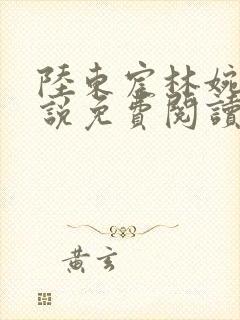 陸東宦林婉
說免費閱讀
黃玄